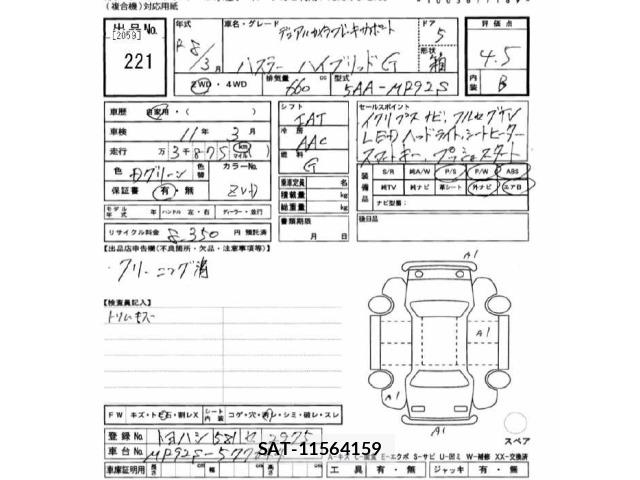 (複合機)対応用紙
出品No.
[2059]
221
年式
R 8/3月
車名・グレード
デュアルカメラブレーキサポート
ハスラー ハイブリッド G
ドア
5
形状
箱
評価点
4.5
内装
B
2WD・4WD
排気量
660 cc
型式
5AA-MR92S
車歴 自家用・( )
車検 11年 3月
走行 万3千875 km マイル
色
Dグリーン
色替
カラーNo.
ZVD
保証書 有・無
モデル年式 年 ハンドル 左・右 ディーラー・並行
リサイクル料金 8,350 円 預託済
シフト
IAT
冷房
AAC
燃料
G
乗車定員 名
積載量 kg
総重量 kg
書類期限
月 日
セールスポイント
イクリプスナビ、フルセグTV
LEDヘッドライト、シートヒーター
スマートキー、プッシュスタート
装備品
S/R 純A/W P/S P/W ABS
純TV 純ナビ 革シート 外ナビ エアB
ナビ型番:
後日品
【出品店申告欄(不良箇所・欠品・注意事項等)】
・クリーニング済
【検査員記入】
トリムキズ
A1
A1
A1
A1
スペア
FW キズ・トビ石・割レX シート内装 コゲ・穴・汚レ・シミ・破レ・スレ
登録No. トヨハシ 581 セ 2975
車台No. MR92S-577
SAT-11564159
A-キズ E-エクボ S-サビ U-凹ミ W-補修 XX-交換済
車庫証明用 長さ 幅 高さ 工具 有・無 ジャッキ 有・無